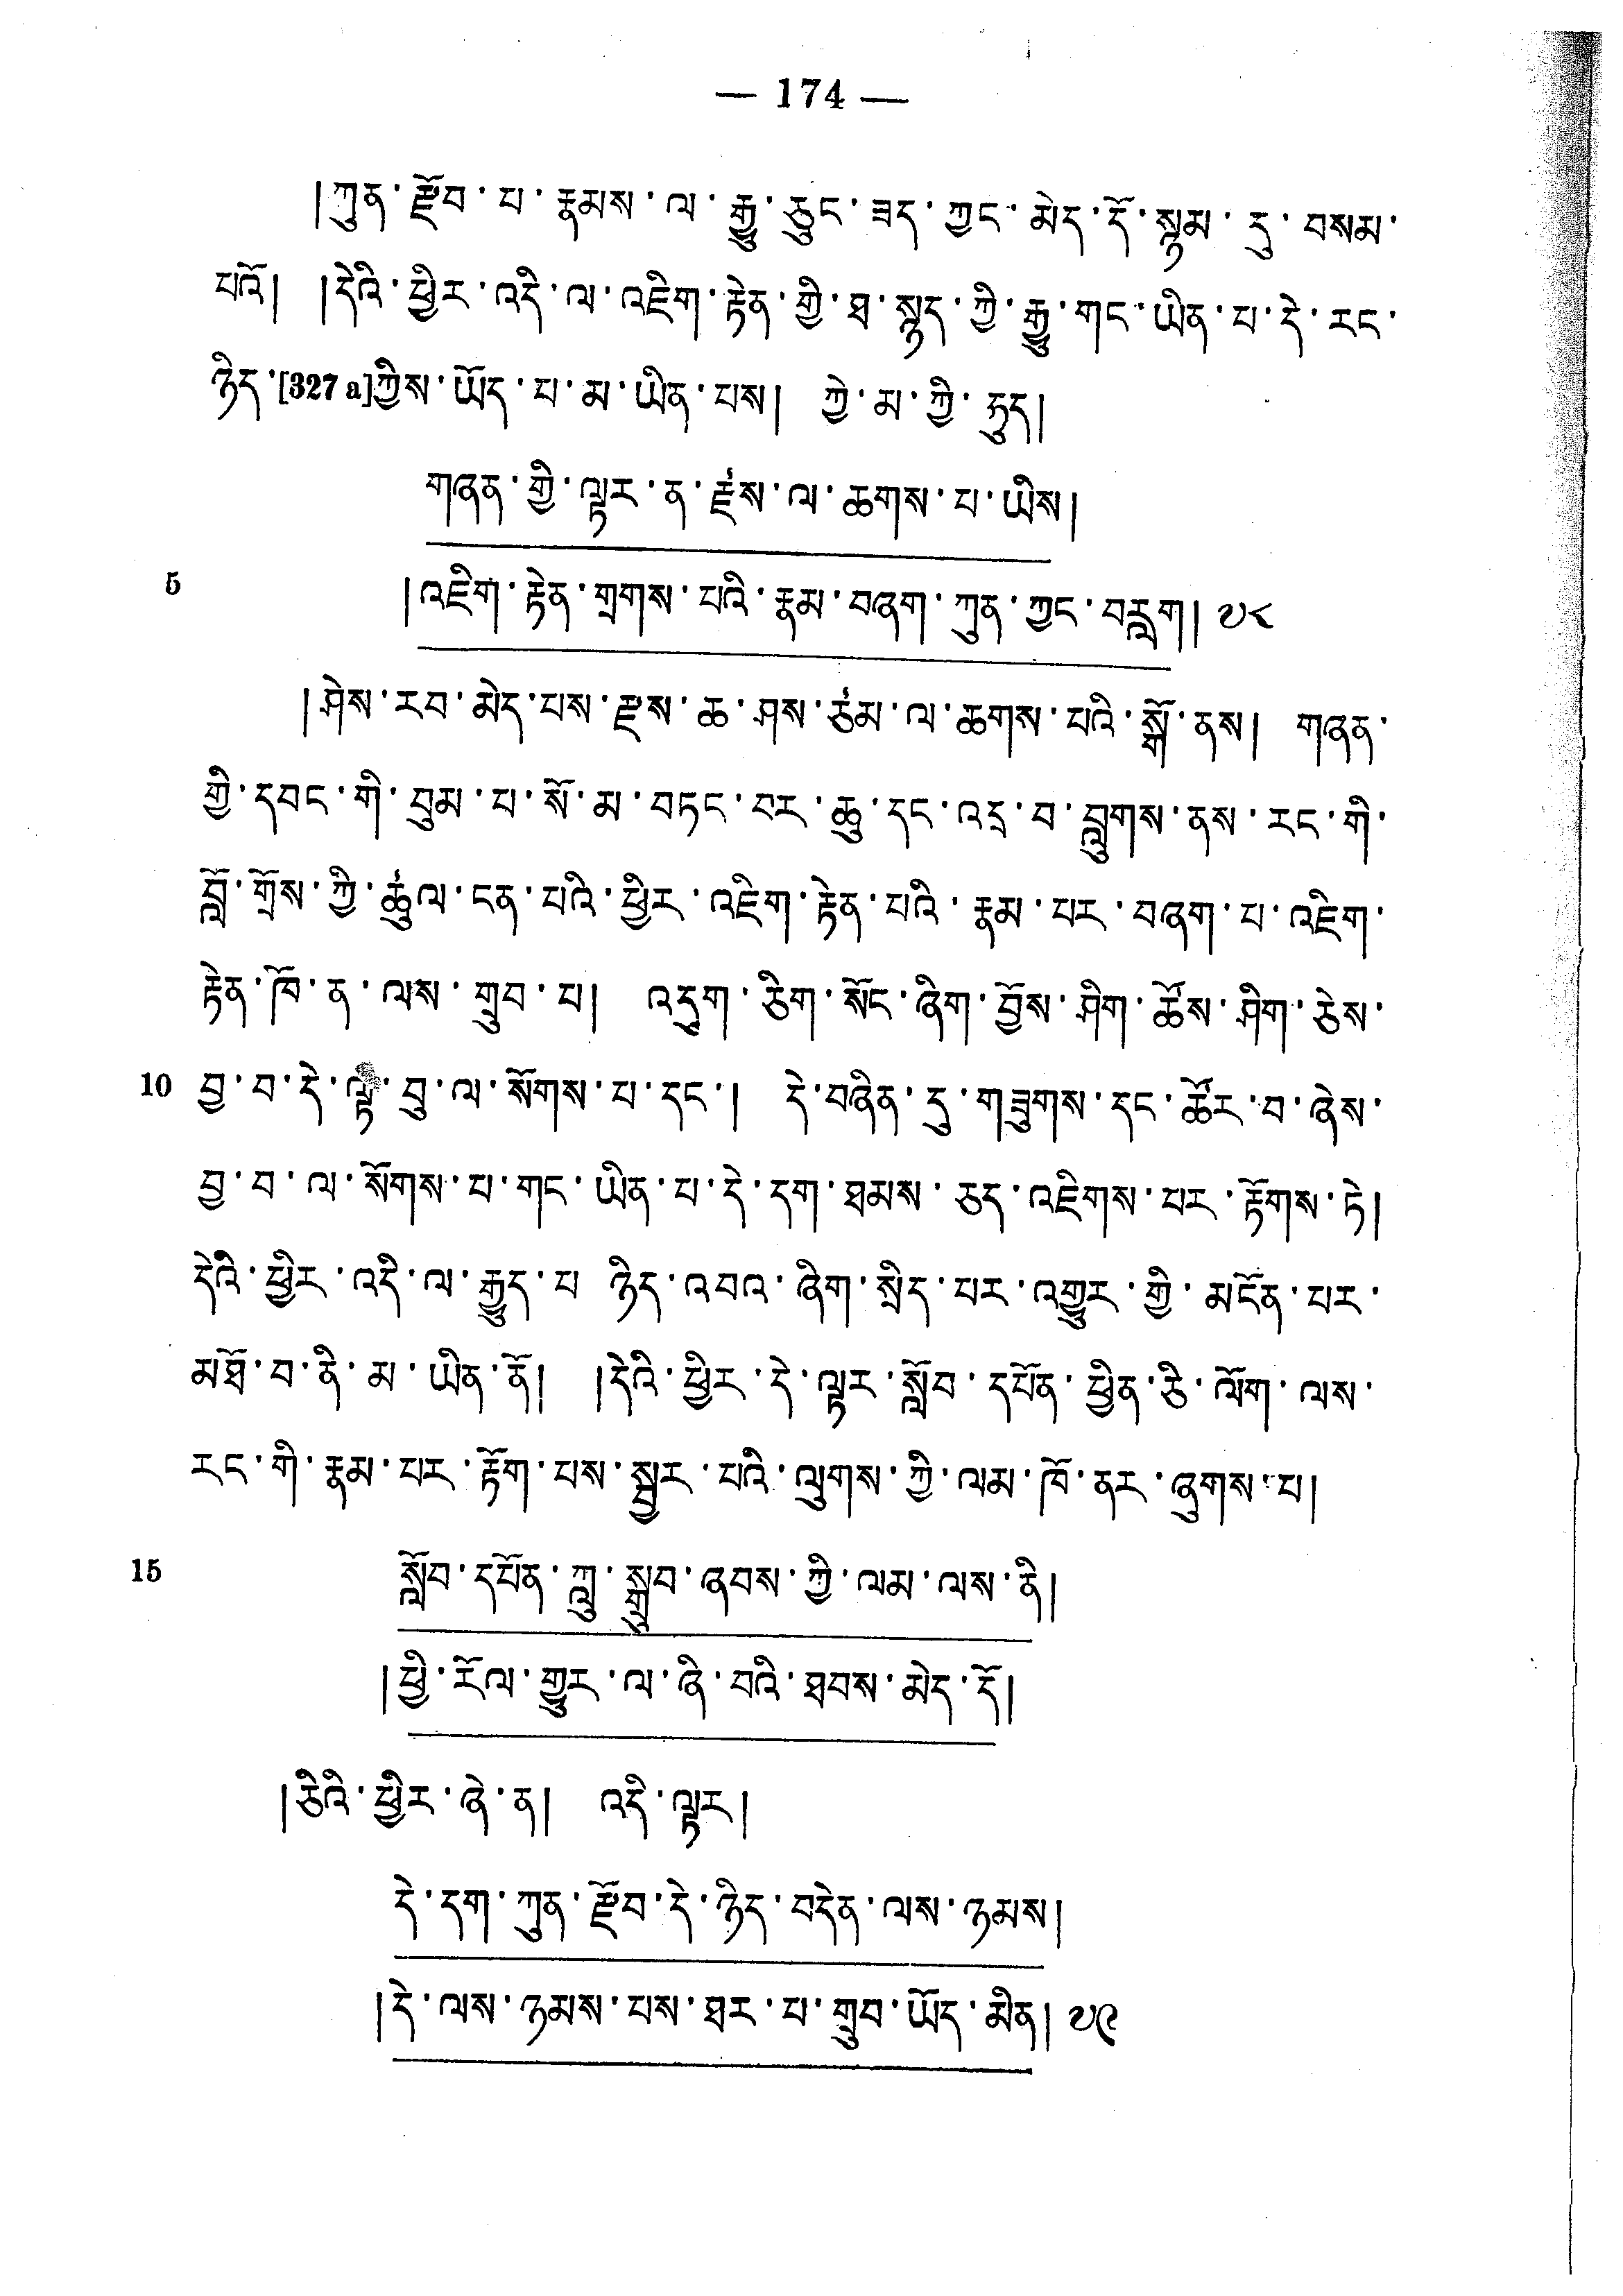 — 174 —
།ཀུན་རྫོབ་པ་རྣམས་ལ་རྒྱུ་ཅུང་ཟད་ཀྱང་མེད་དོ་སྙམ་དུ་བསམ་
པའོ། །དེའི་ཕྱིར་འདི་ལ་འཇིག་རྟེན་གྱི་ཐ་སྙད་ཀྱི་རྒྱུ་གང་ཡིན་པ་དེ་རང་
ཉིད་[327 a]ཀྱིས་ཡོད་པ་མ་ཡིན་པས། ཀྱེ་མ་ཀྱི་ཧུད།
གཞན་གྱི་ལྟར་ན་རྫས་ལ་ཆགས་པ་ཡིས།
5 །འཇིག་རྟེན་གྲགས་པའི་རྣམ་བཞག་ཀུན་ཀྱང་བརླག། ༧༨
།ཤེས་རབ་མེད་པས་རྫས་ཆ་ཤས་ཙམ་ལ་ཆགས་པའི་སྒོ་ནས། གཞན་
གྱི་དབང་གི་བུམ་པ་སོ་མ་བཏང་བར་ཆུ་དང་འདྲ་བ་བླུགས་ནས་རང་གི་
བློ་གྲོས་ཀྱི་ཚུལ་ངན་པའི་ཕྱིར་འཇིག་རྟེན་པའི་རྣམ་པར་བཞག་པ་འཇིག་
རྟེན་ཁོ་ན་ལས་གྲུབ་པ། འདུག་ཅིག་སོང་ཞིག་བྱོས་ཤིག་ཚོས་ཤིག་ཅེས་
10 བྱ་བ་དེ་ལྟ་བུ་ལ་སོགས་པ་དང་། དེ་བཞིན་དུ་གཟུགས་དང་ཚོར་བ་ཞེས་
བྱ་བ་ལ་སོགས་པ་གང་ཡིན་པ་དེ་དག་ཐམས་ཅད་འཇིགས་པར་རྟོགས་ཏེ།
དེའི་ཕྱིར་འདི་ལ་རྒྱུད་པ ཉིད་འབའ་ཞིག་སྲིད་པར་འགྱུར་གྱི་མངོན་པར་
མཐོ་བ་ནི་མ་ཡིན་ནོ། །དེའི་ཕྱིར་དེ་ལྟར་སློབ་དཔོན་ཕྱིན་ཅི་ལོག་ལས་
རང་གི་རྣམ་པར་རྟོག་པས་སྦྱར་པའི་ལུགས་ཀྱི་ལམ་ཁོ་ནར་ཞུགས་པ།
15 སློབ་དཔོན་ཀླུ་སྒྲུབ་ཞབས་ཀྱི་ལམ་ལས་ནི།
།ཕྱི་རོལ་གྱུར་ལ་ཞི་བའི་ཐབས་མེད་དོ།
།ཅིའི་ཕྱིར་ཞེ་ན། འདི་ལྟར།
དེ་དག་ཀུན་རྫོབ་དེ་ཉིད་བདེན་ལས་ཉམས།
།དེ་ལས་ཉམས་པས་ཐར་པ་གྲུབ་ཡོད་མིན། ༧༩